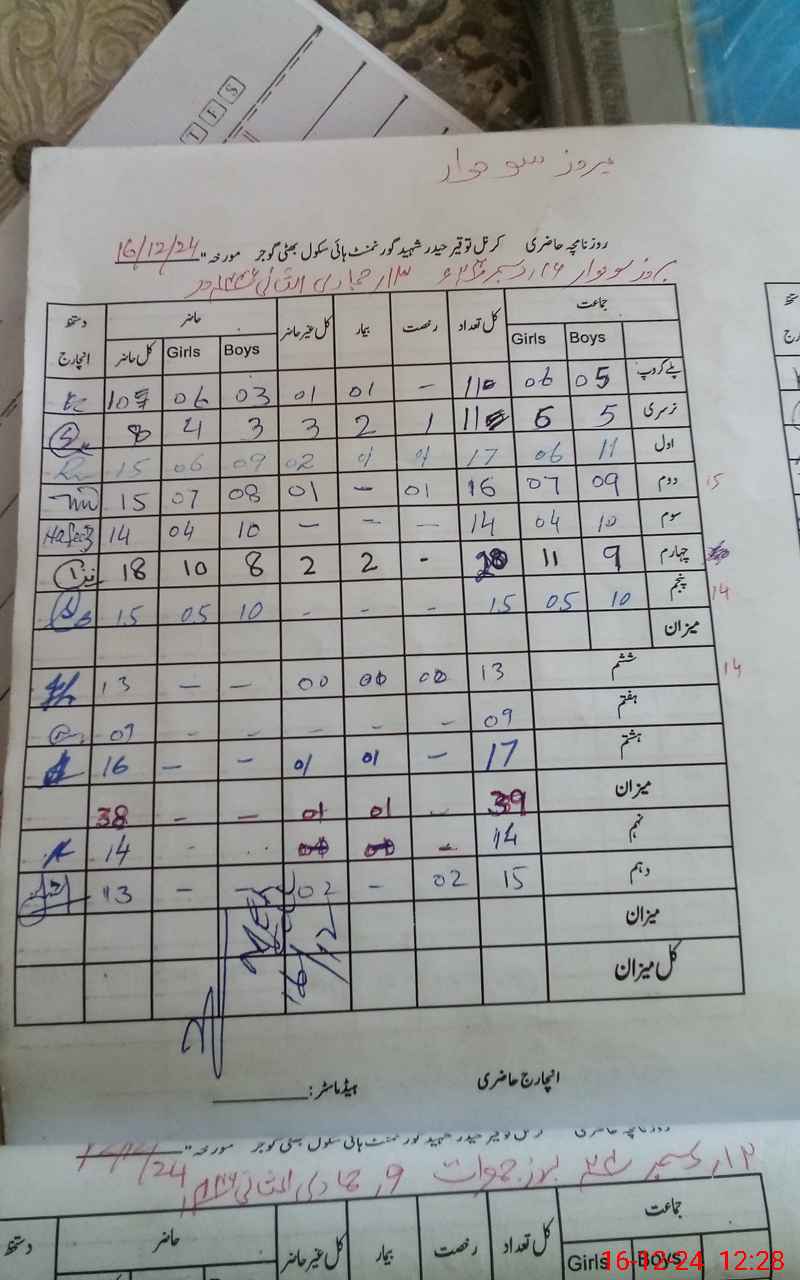 TES
بروز سوموار
روزنامچہ حاضری کرنل توقیر حیدر شہید گورنمنٹ ہائی سکول بھٹی گوجر مورخہ 16/12/24
بروز سوموار 16 دسمبر 13 جمادی الثانی
جماعت کل تعداد رخصت بیمار کل غیر حاضر حاضر دستخط انچارج
Boys Girls Boys Girls کل حاضر
پلے گروپ 05 06 11 - 01 01 03 06
نرسری 5 6 11 1 2 3 3 4 8
اول 11 06 17 01 01 02 09 06 15
دوم 09 07 16 01 - 01 08 07 15
15
سوم 10 04 14 - - - 10 04 14 Hafeez
چہارم 9 11 20 - 2 2 8 10 18
پنجم 10 05 15 - - - 10 05 15
14
میزان
ششم 13 00 00 00 - - 13
14
ہفتم 09 - - - - - 09
ہشتم 17 - 01 01 - - 16
میزان 39 - 01 01 - - 38
نہم 14 - - - 14
دہم 15 02 - 02 - - 13
میزان
16/12
کل میزان
انچارج حاضری ہیڈماسٹر:
روزنامچہ حاضری کرنل توقیر حیدر شہید گورنمنٹ ہائی سکول بھٹی گوجر مورخہ 12/12/24
12 دسمبر بروز جمعرات 9 جمادی الثانی
جماعت کل تعداد رخصت بیمار کل غیر حاضر حاضر دستخط
Boys Girls
16-12-24 12:28